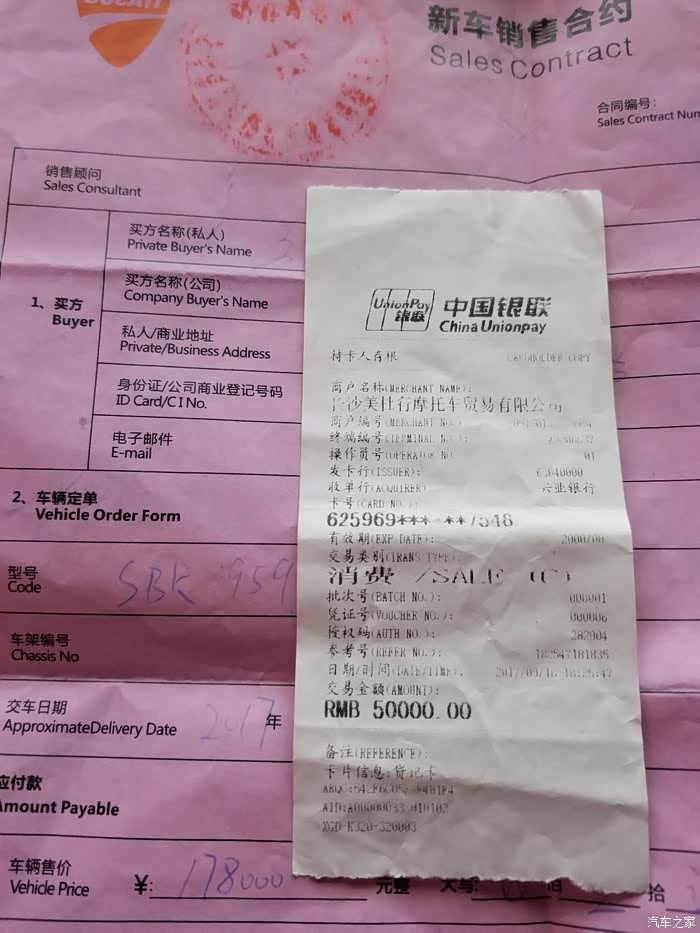 DUCATI
新车销售合约
Sales Contract
合同编号：
Sales Contract Num
销售顾问
Sales Consultant
1、买方
Buyer
买方名称(私人)
Private Buyer's Name
买方名称(公司)
Company Buyer's Name
私人/商业地址
Private/Business Address
身份证/公司商业登记号码
ID Card/C I No.
电子邮件
E-mail
2、车辆定单
Vehicle Order Form
型号
Code
SBK 959
车架编号
Chassis No
交车日期
ApproximateDelivery Date
2017年
应付款
Amount Payable
车辆售价
Vehicle Price
¥: 178000 元整 大写: 佰 拾
UnionPay
银联
中国银联
China Unionpay
持卡人存根 CARDHOLDER COPY
商户名称(MERCHANT NAME):
长沙美杜行摩托车贸易有限公司
商户编号(MERCHANT NO.):
终端编号(TERMINAL NO.):
操作员号(OPERATOR NO. 01
发卡行(ISSUER):
收单行(ACQUIRER): 兴业银行
卡号(CARD NO.):
625969*** **7548
有效期(EXP DATE):
交易类别(TRANS TYPE):
消费 /SALE (C)
批次号(BATCH NO.): 000001
凭证号(VOUCHER NO.): 000006
授权码(AUTH NO.): 282904
参考号(REFER NO.): 182547181835
日期/时间(DATE/TIME): 2017/09/16 18:25:47
交易金额(AMOUNT):
RMB 50000.00
备注(REFERENCE):
卡片信息:贷记卡
XGD-K320-320003
汽车之家